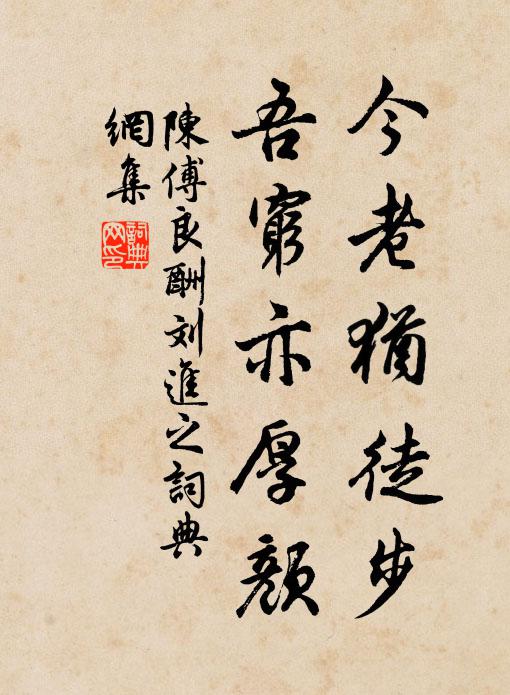 今老猶徒步
吾窮亦厚顏
陳傅良酬刘進之詞典
網集
詞典
网印